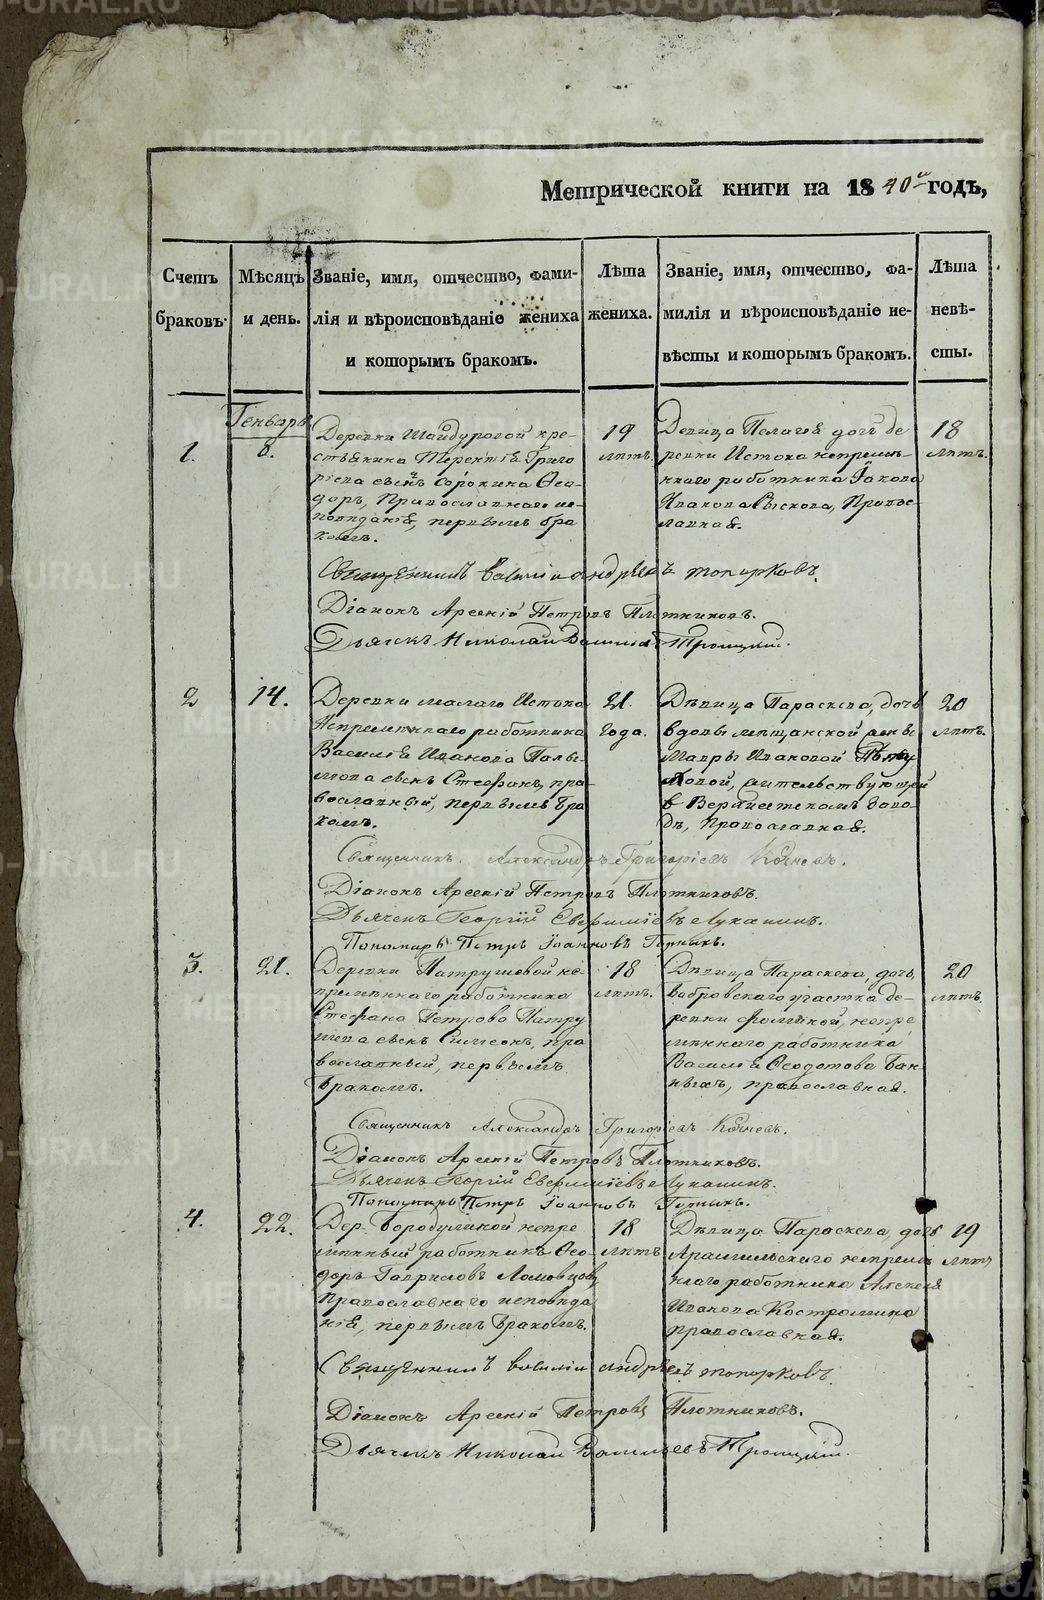 Метрической книги на 1840й годъ,
Счетъ браковъ.
Мѣсяцъ и день.
Званіе, имя, отчество, фами-
лія и вѣроисповѣданіе жениха
и которымъ бракомъ.
Лѣта
жениха.
Званіе, имя, отчество, фа-
милія и вѣроисповѣданіе не-
вѣсты и которымъ бракомъ.
Лѣта
невѣ-
сты.
Генварь
1.
8.
Деревни Шайдуровой кре-
стьянина Терентія Григо
рьева сынъ Сорокина Ѳео-
доръ, Православнаго ис-
повѣданія, первымъ бра
комъ.
19
лѣтъ.
Девица Пелагея дочь де
ревни Истока непремѣ-
ннаго работника Іакова
Иванова Рыскова, Право-
славная.
18
лѣтъ.
Священникъ Василій Андреевъ Топорковъ.
Діаконъ Арсеній Петровъ Плотниковъ.
Дьячекъ Николай Васильевъ Троицкій.
2
14.
Деревни малаго Истока
Непремѣннаго работника
Василія Иванова Палы-
мова сынъ Стефанъ, пра-
вославный, первымъ бра
комъ.
21.
года.
Дѣвица Параскева, дочь
вдовы мѣщанской жены
Мавры Ивановой
жительствующей
в Верхнеисетскомъ заво-
дѣ, Православная.
20
лѣтъ.
Священникъ Александръ Григорьевъ Кочневъ.
Діаконъ Арсеній Петровъ Плотниковъ.
Дьячекъ Георгій Евѳиміевъ Луканинъ.
Пономарь Петръ Іоанновъ
3.
21.
Деревни Патрушевой не-
премѣннаго работника
Стефана Петрова Патру
шева сынъ Симеонъ, пра
вославный, первымъ
бракомъ.
18
лѣтъ.
Дѣвица Параскева, дочь
Бобровскаго участка де-
ревни Фоминой, непре
мѣннаго работника
Василія Ѳеодотова Бан-
ныхъ, православная.
20
лѣтъ.
Священникъ Александръ Григорьевъ Кочневъ.
Діаконъ Арсеній Петровъ Плотниковъ.
Дьячекъ Георгій Евѳиміевъ Луканинъ.
Пономарь Петръ Іоанновъ
4.
22.
Дер. Бородулиной непре
мѣнный работникъ Ѳео-
доръ Гавриловъ Ломовцовъ
Православнаго исповѣда
нія, первымъ бракомъ.
18
лѣтъ
Дѣвица Параскева, дочь
Арамильскаго непремѣ
ннаго работника Алексея
Иванова Костромина
православная.
19
лѣтъ
Священникъ Василій Андреевъ Топорковъ.
Діаконъ Арсеній Петровъ Плотниковъ.
Дьячекъ Николай Васильевъ Троицкій.
METRIKI.GASO-URAL.RU